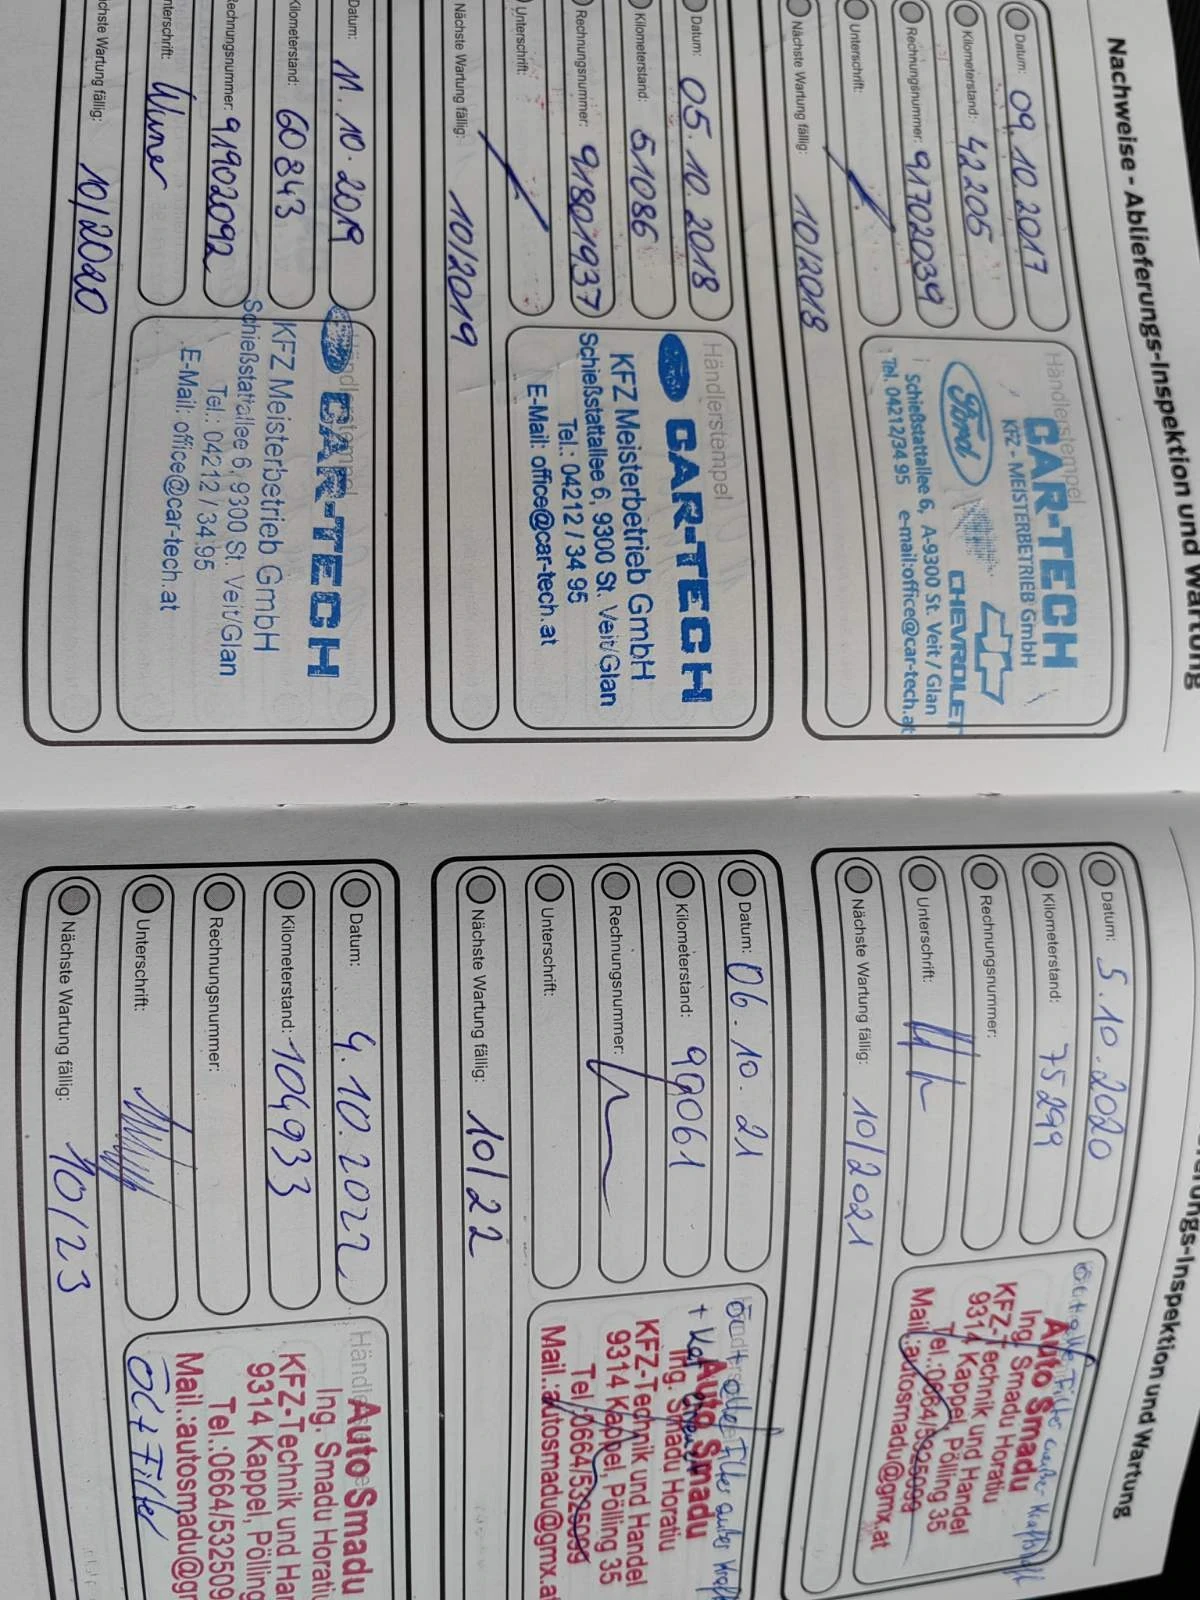 Nachweise - Ablieferungs-Inspektion und Wartung
Datum: 09.10.2017
Kilometerstand: 42205
Rechnungsnummer: 91702039
Unterschrift:
Nächste Wartung fällig: 10/2018
Händlerstempel
CAR-TECH
KFZ - MEISTERBETRIEB GmbH
Ford
CHEVROLET
Schießstattallee 6, A-9300 St. Veit / Glan
Tel. 04212/34 95 e-mail:office@car-tech.at
Datum: 05.10.2018
Kilometerstand: 51086
Rechnungsnummer: 91801937
Unterschrift:
Nächste Wartung fällig: 10/2019
Händlerstempel
Ford CAR-TECH
KFZ Meisterbetrieb GmbH
Schießstattallee 6, 9300 St. Veit/Glan
Tel.: 04212 / 34 95
E-Mail: office@car-tech.at
Datum: 11.10.2019
Kilometerstand: 60843
Rechnungsnummer: 91902092
nterschrift:
chste Wartung fällig: 10/2020
Händlerstempel
CAR-TECH
KFZ Meisterbetrieb GmbH
Schießstattallee 6, 9300 St. Veit/Glan
Tel.: 04212 / 34 95
E-Mail: office@car-tech.at
erungs-Inspektion und Wartung
Datum: 5.10.2020
Kilometerstand: 75299
Rechnungsnummer:
Unterschrift:
Nächste Wartung fällig: 10/2021
Auto Smadu
Ing. Smadu Horatiu
KFZ-Technik und Handel
9314 Kappel, Pölling 35
Tel.:0664/5325099
Mail.:autosmadu@gmx.at
Datum: 06.10.21
Kilometerstand: 99061
Rechnungsnummer:
Unterschrift:
Nächste Wartung fällig: 10/22
Auto Smadu
Ing. Smadu Horatiu
KFZ-Technik und Handel
9314 Kappel, Pölling 35
Tel.:0664/5325099
Mail.:autosmadu@gmx.a
Datum: 4.10.2022
Kilometerstand: 104933
Rechnungsnummer:
Unterschrift:
Nächste Wartung fällig: 10/23
Auto Smadu
Ing. Smadu Horatiu
KFZ-Technik und Han
9314 Kappel, Pölling
Tel.:0664/532509
Mail.:autosmadu@gr
Öl + Filter